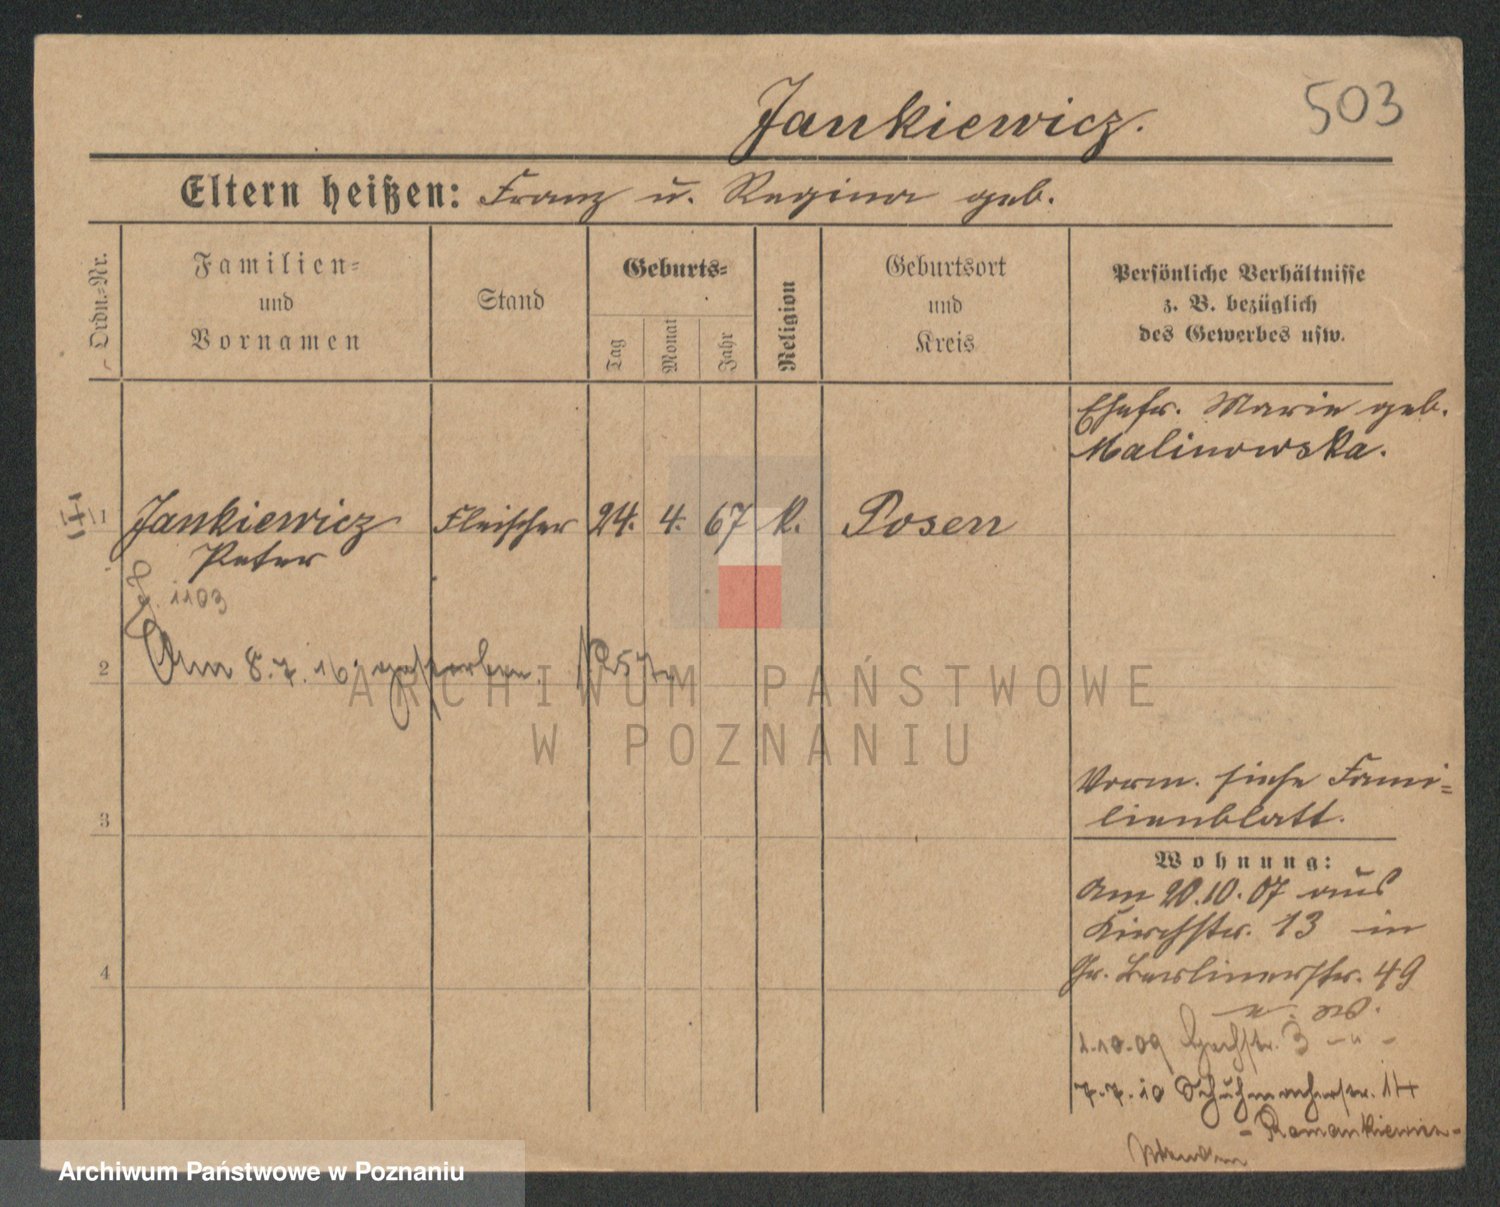 503
Jankiewicz.
Eltern heißen: Franz u. Regina geb.
Ordn.-Nr.
Familien-
und
Vornamen
Stand
Geburts-
Tag
Monat
Jahr
Religion
Geburtsort
und
Kreis
Persönliche Verhältnisse
z. B. bezüglich
des Gewerbes usw.
Ehefr. Marie geb.
Malinowska.
1 Jankiewicz Fleischer 24. 4. 67 k. Posen
Peter
1103
2 Am 8.7.16 gestorben.
3
Vorm. siehe Fami-
lienblatt.
Wohnung:
Am 20.10.07 aus
Kirchstr. 13 in
4
Gr. Berlinerstr. 49
1.10.09 3
7.7.10 Schuhmacherstr. 14
ARCHIWUM PAŃSTWOWE
W POZNANIU
Archiwum Państwowe w Poznaniu